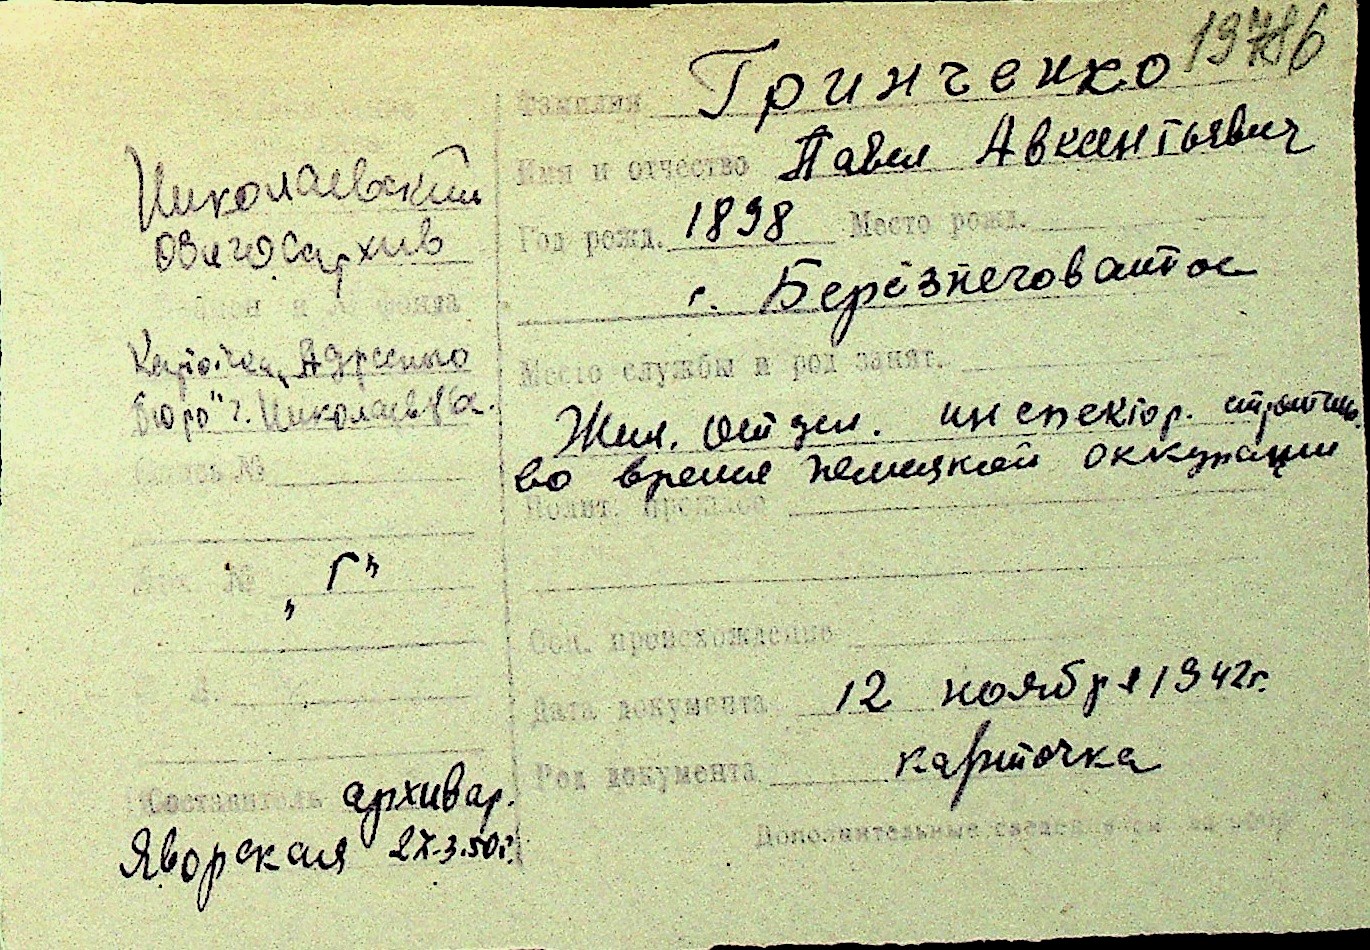 Фамилия Гринченко
Имя и отчество Павел Авксентьевич
Год рожд. 1898 Место рожд.
с. Березнеговатое
Место службы и род занят.
Жил. отдел. инспектор.
во время немецкой оккупации
Полит. прошлое
Соц. происхождение
Дата документа 12 ноября 1942г.
Род документа карточка
Дополнительные сведения
Николаевский
облгосархив
и № фонда
Картотека „Адресного
бюро" г. Николаева.
Опись №
№ „Г"
Составитель архивар.
Яворская 27.3.50г.